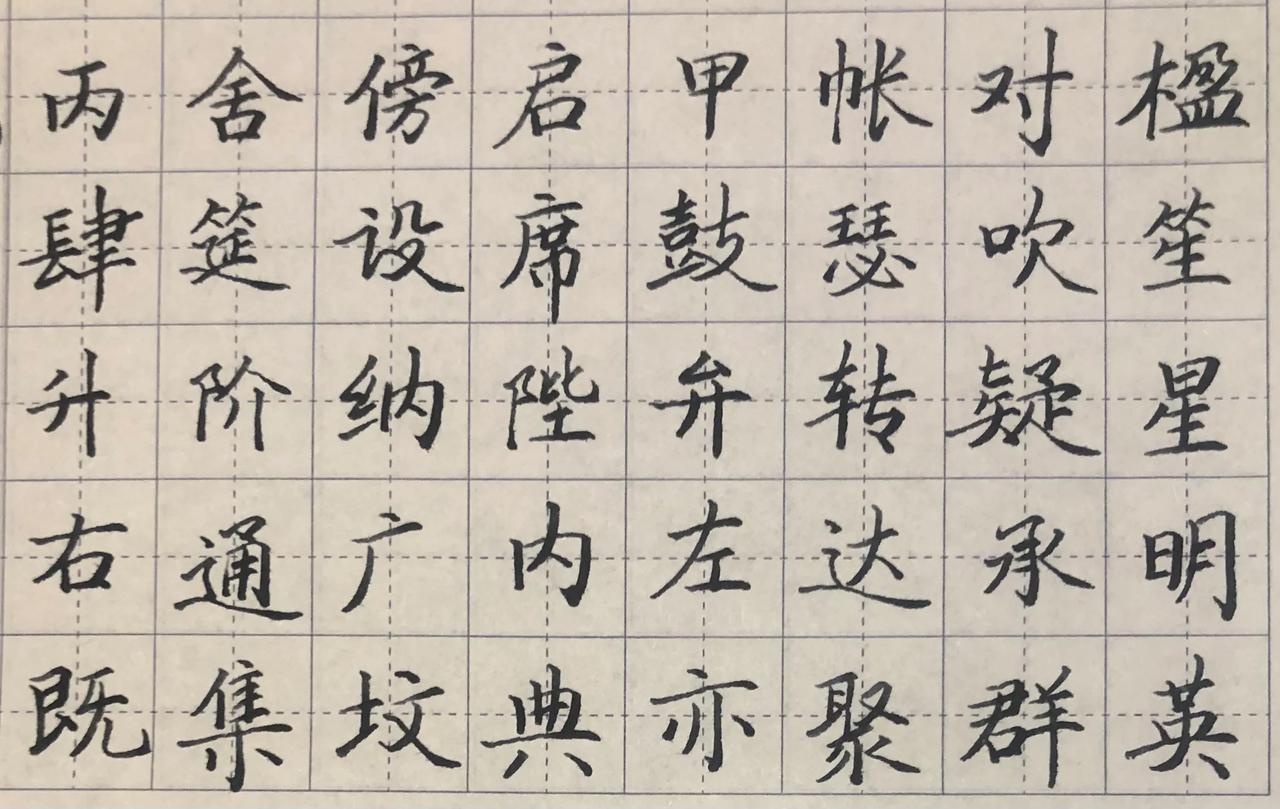 丙舍傍启甲帐对楹
肆筵设席鼓瑟吹笙
升阶纳陛弁转疑星
右通广内左达承明
既集坟典亦聚群英